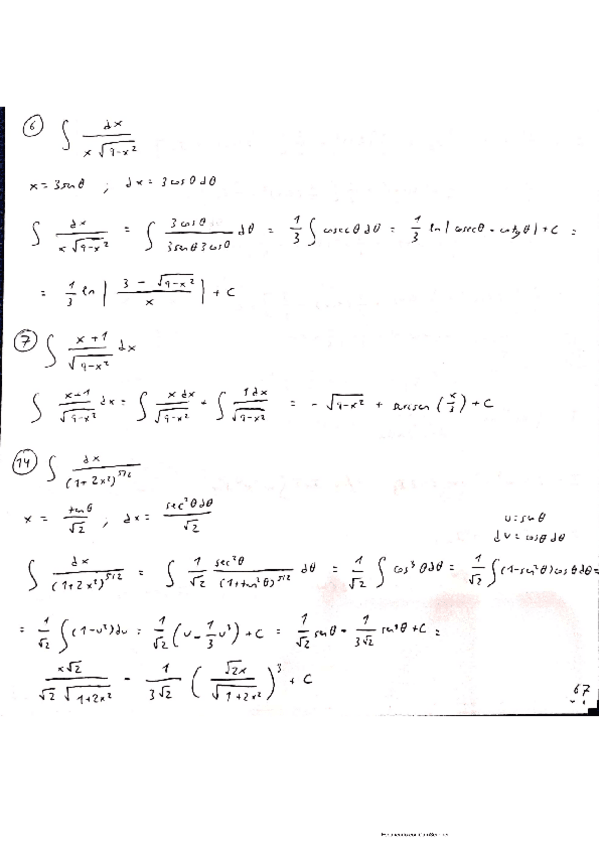 ⑥ ∫ dx / (x √(9-x²))
x = 3 sen θ ; dx = 3 cos θ dθ
∫ dx / (x √(9-x²)) = ∫ 3 cos θ / (3 sen θ 3 cos θ) dθ = 1/3 ∫ cosec θ dθ = 1/3 ln | cosec θ - cotg θ | + C =
= 1/3 ln | (3 - √(9-x²)) / x | + C
⑦ ∫ (x+1) / √(9-x²) dx
∫ (x+1) / √(9-x²) dx = ∫ x dx / √(9-x²) + ∫ 1 dx / √(9-x²) = - √(9-x²) + arcsen (x/3) + C
⑭ ∫ dx / (1+2x²)^(5/2)
x = tan θ / √2 ; dx = sec² θ dθ / √2
u = sen θ
du = cos θ dθ
∫ dx / (1+2x²)^(5/2) = ∫ 1/√2 sec² θ / (1+tan² θ)^(5/2) dθ = 1/√2 ∫ cos³ θ dθ = 1/√2 ∫ (1-sen² θ) cos θ dθ =
= 1/√2 ∫ (1-u²) du = 1/√2 (u - 1/3 u³) + C = 1/√2 sen θ - 1/(3√2) sen³ θ + C =
x√2 / (√2 √(1+2x²)) - 1/(3√2) (√2x / √(1+2x²))³ + C
67